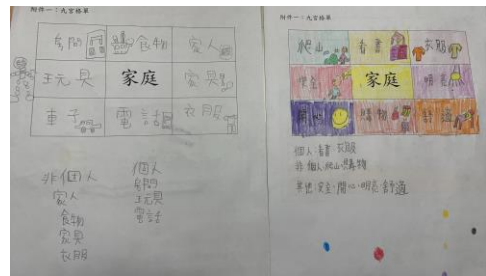 附件一：九宮格單
房間 食物 家人
玩具 家庭 家具
車子 電話 衣服
非個人
家人
食物
家具
衣服
個人
房間
玩具
電話
附件一：九宮格單
爬山 看書 衣服
安全 家庭 明亮
開心 購物 舒適
個人：看書、衣服
非個人：爬山、購物
其他：安全、開心、明亮、舒適